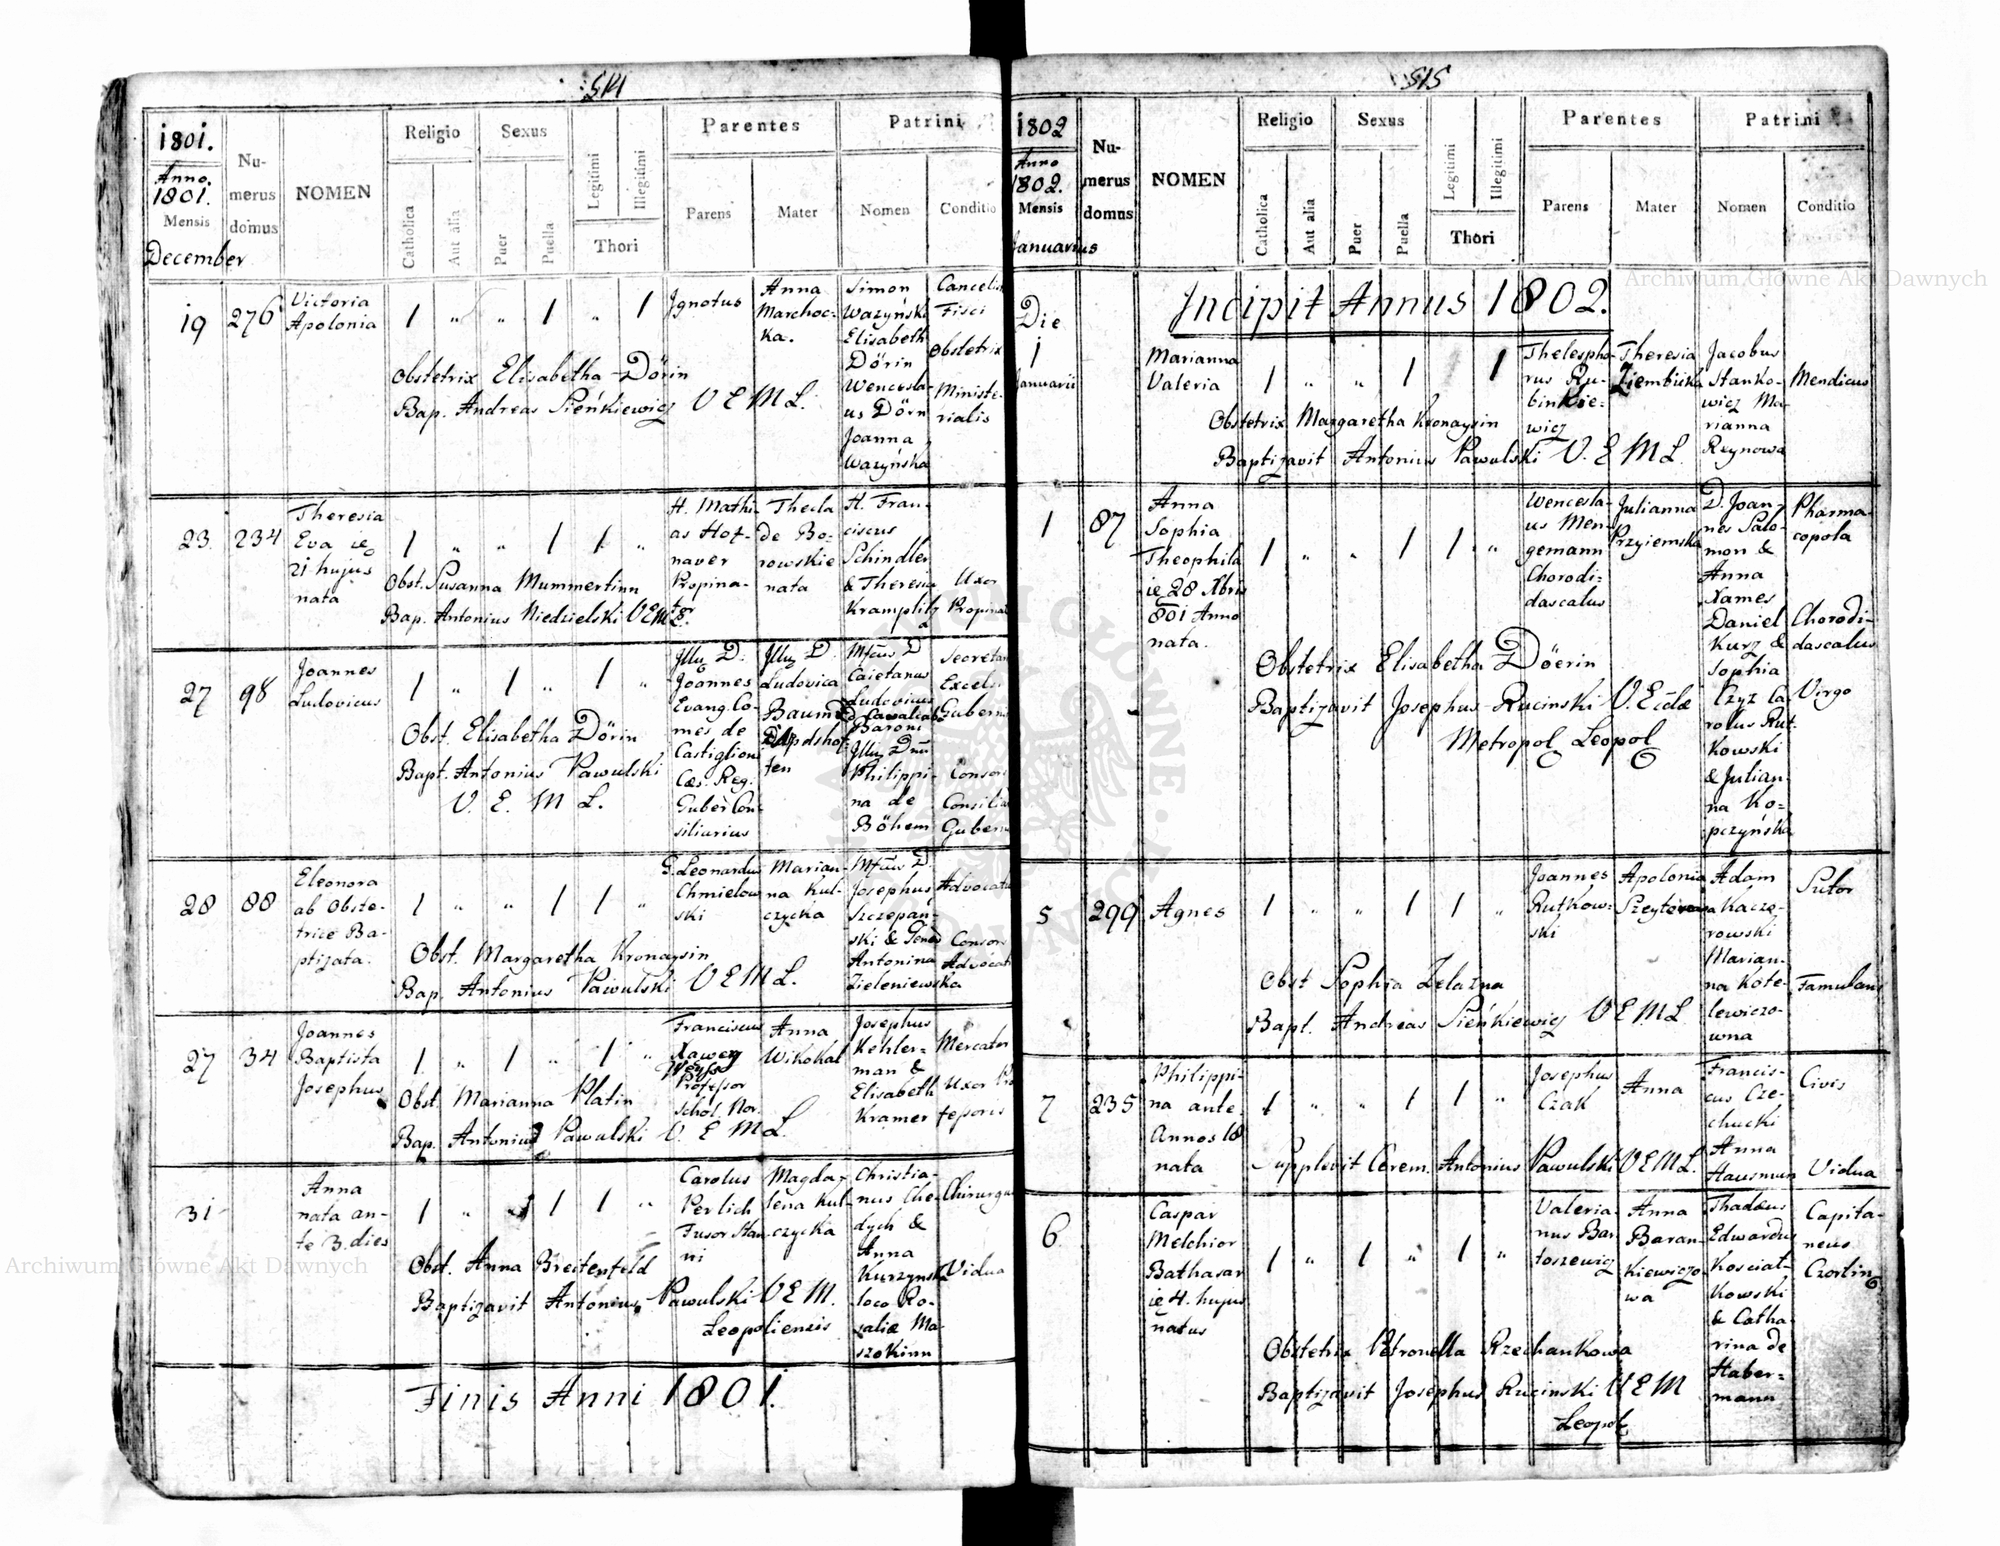 514
1801.
Anno
1801.
Mensis
December
Numerus domus
NOMEN
Religio
Catholica
Aut alia
Sexus
Puer
Puella
Legitimi
Illegitimi
Thori
Parentes
Parens
Mater
Patrini
Nomen
Conditio
19
276
Victoria
Apolonia
1 " " 1 " 1
Ignotus
Anna
Marchoc-
ka.
Simon
Wazyński
Elisabeth
Dörin
Wencesla-
us Dörn
Joanna
Wazyńska
Fisci
Obstetrix
Ministe-
rialis
Obstetrix Elisabetha Dörin
Bap. Andreas Sieńkiewicz V E M L.
23.
234
Theresia
Eva ie
21 hujus
nata
1 " " 1 1 "
H. Mathi-
as Hof-
naver
Propina-
tor
Thecla
de Bo-
rowskie
nata
H. Fran-
ciscus
Schindler
& Theresia
Kramplitz
Uxor
Obst. Susanna Mummertinn
Bap. Antonius Niedzielski V E M L.
27
98
Joannes
Ludovicus
1 " 1 " 1 "
Illu D:
Joannes
Evang. Co-
mes de
Castiglioni
Cæs. Reg.
Guber Con-
siliarius
Illu D.
Ludovica
ten
Caietanus
Ludovicus
Baroni
Philippi-
na de
Böhem
Excels.
Obst. Elisabetha Dörin
Bapt. Antonius Pawulski
V. E. M L.
28
88
Eleonora
ab Obste-
trice Ba-
ptizata.
1 " " 1 1 "
G. Leonardus
Chmielow-
ski
Marian-
na Kul-
czycka
Josephus
Szczepan-
ski &
Antonina
Zieleniewska
Obst. Margaretha Kronaysin
Bap. Antonius Pawulski V E M L.
27
34
Joannes
Baptista
Josephus
1 " 1 " 1 "
Franciscus
Xawery
Professor
Schol. Nor.
Anna
Wikokal
Josephus
Kehler-
man &
Elisabeth
Kramer
Mercator
Uxor Pro-
fesoris
Obst. Marianna Platin
Bap. Antonius Pawulski V. E M L.
31
Anna
nata an-
te 3. dies
1 " 1 1 "
Carolus
Perlich
Fusor Stan-
ni
Magda-
lena Kul-
czycka
Christia-
nus Che-
dych &
Anna
Kurzynska
loco Ro-
zaliæ Ma-
szokinn
Vidua
Obst. Anna Breitenfeld
Baptizavit Antonius Pawulski V E M.
Leopoliensis
Finis Anni 1801.
515
1802
Anno
1802.
Mensis
Januarius
Numerus domus
NOMEN
Religio
Catholica
Aut alia
Sexus
Puer
Puella
Legitimi
Illegitimi
Thori
Parentes
Parens
Mater
Patrini
Nomen
Conditio
Incipit Annus 1802.
Die
1
Januarii
Marianna
Valeria
1 " " 1 1
Thelespho-
rus Ru-
binkie-
wicz
Theresia
Ziembicka
Jacobus
Stanko-
wicz Ma-
rianna
Reynowa
Mendicus
Obstetrix Margaretha Kronaysin
Baptizavit Antonius Pawulski V. E M L.
1
87
Anna
Sophia
Theophila
ie 28 Xbris
801 Anno
nata.
1 " " 1 1 "
Wencesla-
us Men-
gemann
Chorodi-
dascalus
Julianna
Przyiemska
D. Joan-
nes Salo-
mon &
Anna
Xames
Daniel
Kurz &
Sophia
Czyz Ca-
rolus Rut-
kowski
& Julian-
na Ko-
pczyńska
Pharma-
copola
Chorodi-
dascalus
Virgo
Obstetrix Elisabetha Döerin
Baptizavit Josephus Rucinski V. Ecclæ
Metropol Leopol
5
299
Agnes
1 " " 1 1 "
Joannes
Rutkow-
ski
Apolonia
Adam
Kacze-
rowski
Marian-
na Kote-
lewiczo-
wna
Sutor
Famulans
Obst Sophia Zelazna
Bapt. Andreas Sieńkiewicz V E M L
7
235
Philippi-
na ante
Annos 18
nata
1 " " 1 1 "
Josephus
Czak
Anna
Francis-
cus Cze-
chucki
Anna
Hausmun
Civis
Vidua
Supplevit Cerem. Antonius Pawulski V E M L.
6.
Caspar
Melchior
Bathasar
ie 4. hujus
natus
1 " 1 " 1 "
Valeria-
nus Bar-
toszewicz
Anna
Baran-
kiewiczo-
wa
Thadæus
Edwardus
Kosciat-
kowski
& Catha-
rina de
Haber-
mann
Capita-
neus
Obstetrix Petronella Rzechankowa
Baptizavit Josephus Rucinski V E M
Leopol
Archiwum Główne Akt Dawnych
Archiwum Główne Akt Dawnych